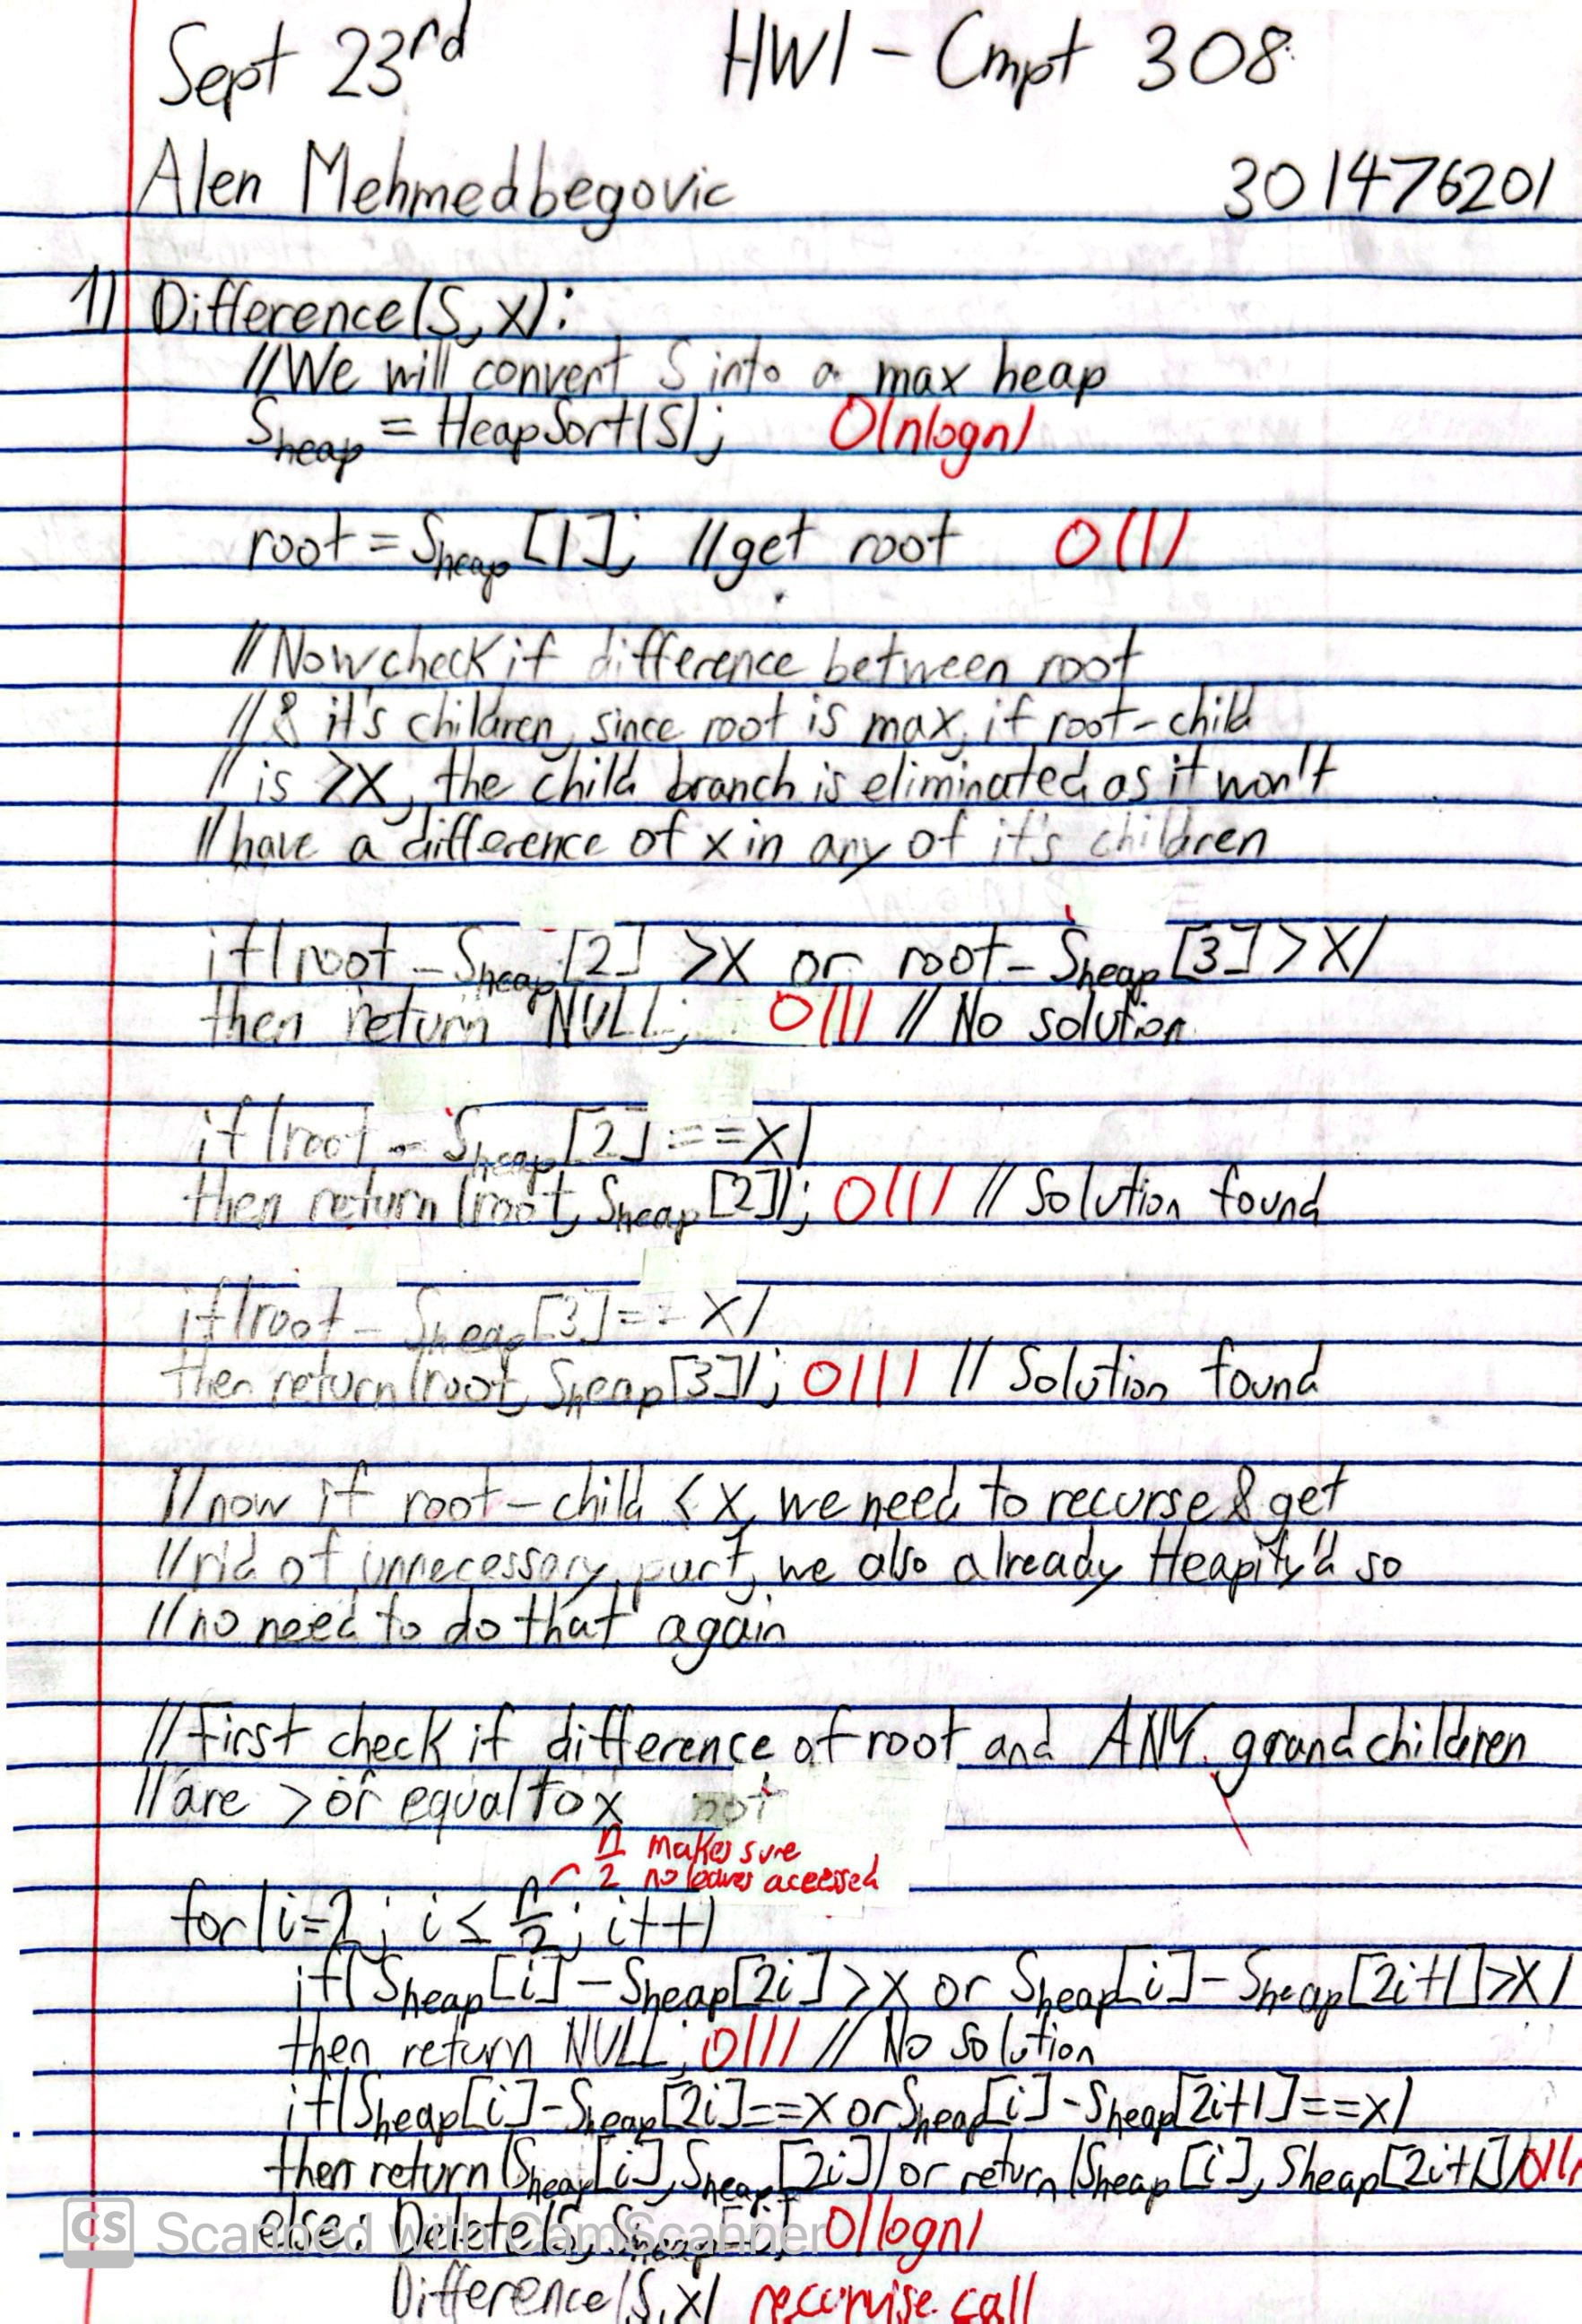 Sept 23rd HW1 - Cmpt 308
Alen Mehmedbegovic 301476201
1) Difference(S, x):
//We will convert S into a max heap
Sheap = HeapSort(S); O(nlogn)
root = Sheap [1]; //get root O(1)
//Now check if difference between root
//& it's children, since root is max, if root-child
// is >x, the child branch is eliminated as it won't
//have a difference of x in any of it's children
if(root - Sheap[2] >x or root - Sheap[3] >x)
then return NULL; O(1) // No solution
if(root - Sheap[2]==x)
then return (root, Sheap[2]); O(1) // Solution found
if(root - Sheap[3]==x)
then return(root, Sheap[3]); O(1) // Solution found
//now if root-child < x, we need to recurse & get
//rid of unnecessary part, we also already Heapify'd so
//no need to do that again
//First check if difference of root and ANY grandchildren
//are > or equal to x not
n/2 makes sure
no leaves acessed
for(i=2; i ≤ n/2; i++)
if(Sheap[i] - Sheap[2i] >x or Sheap[i] - Sheap[2i+1]>x)
then return NULL; O(1) // No solution
if(Sheap[i]-Sheap[2i]==x or Sheap[i]-Sheap[2i+1]==x)
then return(Sheap[i], Sheap[2i]) or return (Sheap[i], Sheap[2i+1])
else: Delete(S, O(logn)
Difference(S,x) recursive call
CS Scanned with CamScanner